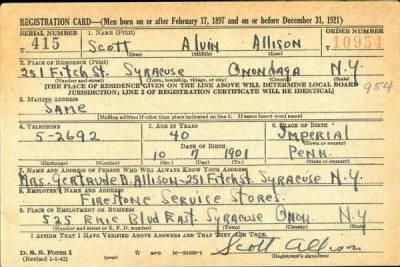 REGISTRATION CARD—(Men born on or after February 17, 1897 and on or before December 31, 1921)
SERIAL NUMBER 1. NAME (Print) ORDER NUMBER
T 415 Scott Alvin Allison 10954
(First) (Middle) (Last)
2. PLACE OF RESIDENCE (Print)
251 Fitch St. Syracuse Onondaga N.Y.
(Number and street) (Town, township, village, or city) (County) (State)
[THE PLACE OF RESIDENCE GIVEN ON THE LINE ABOVE WILL DETERMINE LOCAL BOARD JURISDICTION; LINE 2 OF REGISTRATION CERTIFICATE WILL BE IDENTICAL]
954
3. MAILING ADDRESS
Same
[Mailing address if other than place indicated on line 2. If same insert word same]
4. TELEPHONE 5. AGE IN YEARS 6. PLACE OF BIRTH
5-2692 40 Imperial
DATE OF BIRTH (Town or county)
10 7 1901 Penn.
(Exchange) (Number) (Mo.) (Day) (Yr.) (State or country)
7. NAME AND ADDRESS OF PERSON WHO WILL ALWAYS KNOW YOUR ADDRESS
Mrs. Gertrude A. Allison-251 Fitch St. Syracuse N.Y.
8. EMPLOYER'S NAME AND ADDRESS
Firestone Service Stores.
9. PLACE OF EMPLOYMENT OR BUSINESS
525 Erie Blvd East. Syracuse Onon. N.Y.
(Number and street or R. F. D. number) (Town) (County) (State)
I AFFIRM THAT I HAVE VERIFIED ABOVE ANSWERS AND THAT THEY ARE TRUE.
D. S. S. Form 1
(Revised 1-1-42) (over)
Scott Allison
(Registrant's signature)